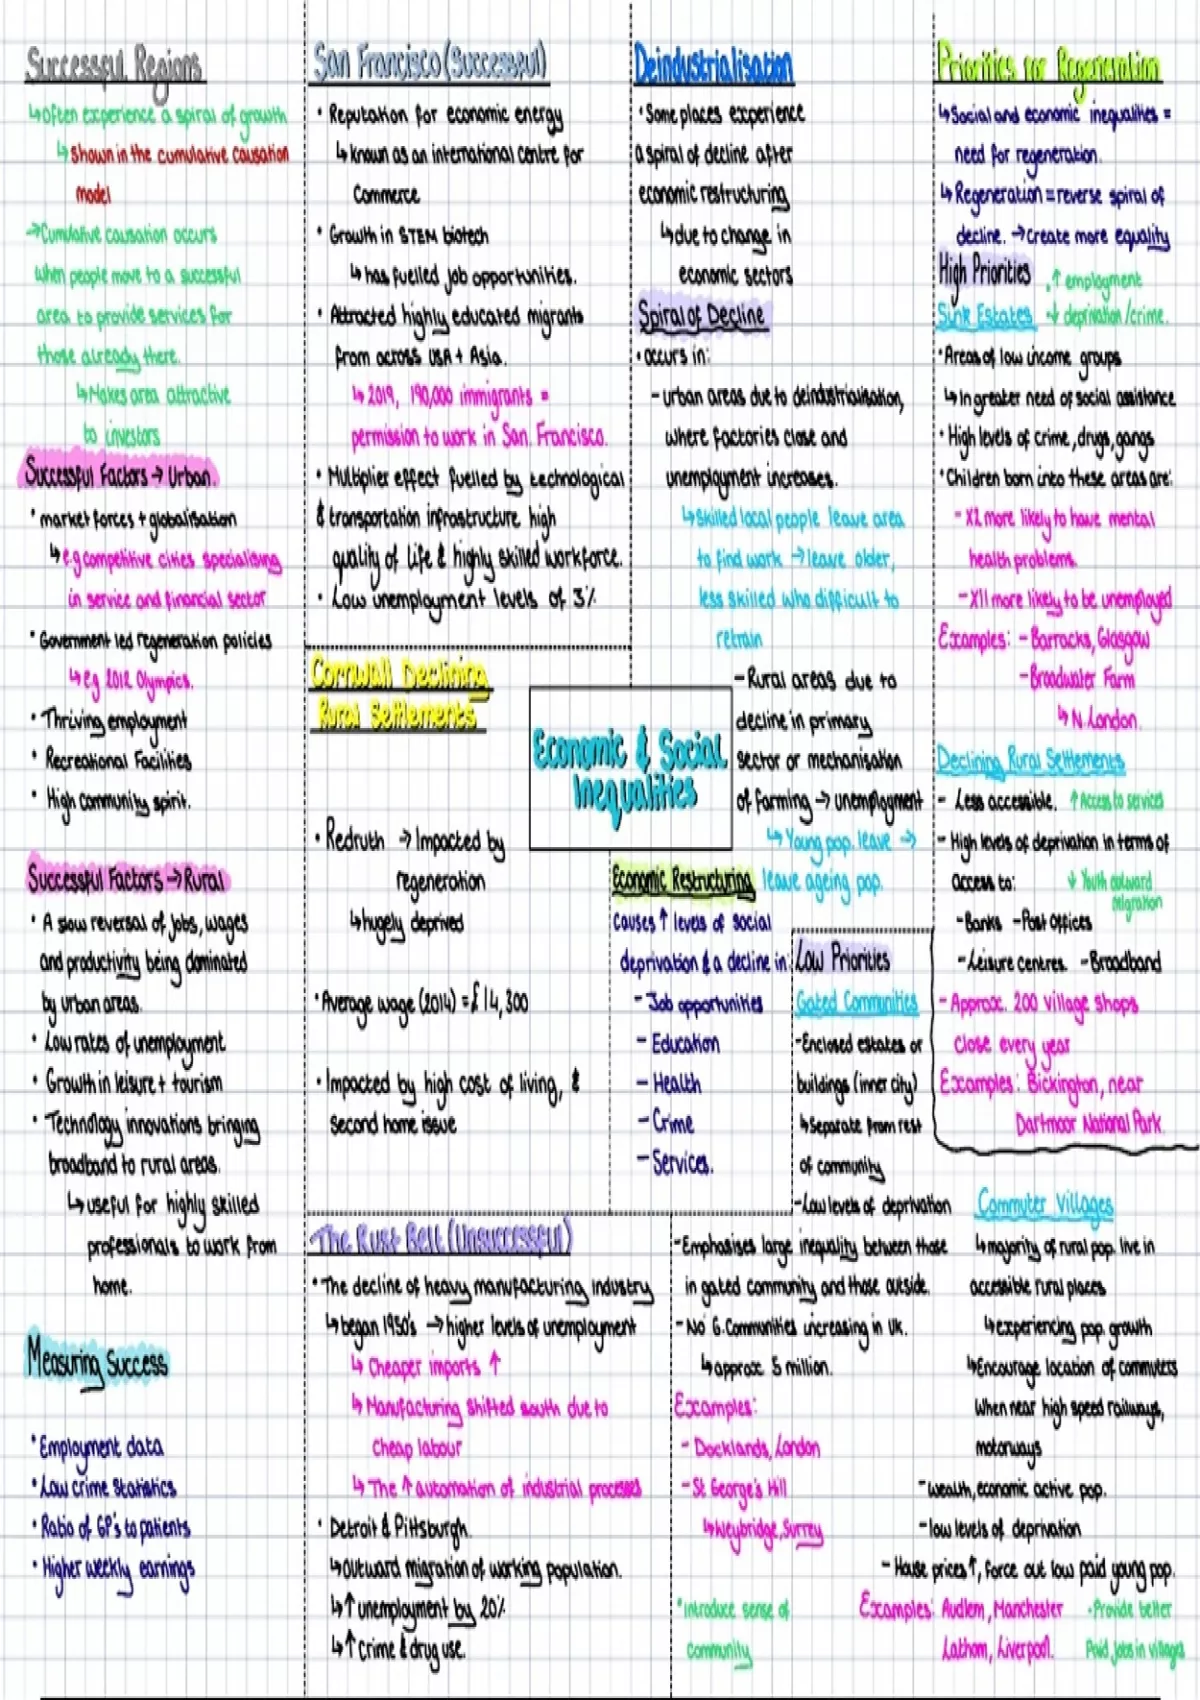 Successful Regions
↳Often experience a spiral of growth
↳Shown in the cumulative causation
model
→Cumulative causation occurs
when people move to a successful
area to provide services for
those already there.
↳Makes area attractive
to investors
Successful Factors → Urban.
• market forces + globalisation
↳e.g competitive cities specialising
in service and financial sector
• Government led regeneration policies
↳eg 2012 Olympics.
• Thriving employment
• Recreational Facilities
• High community spirit.
Successful Factors → Rural
• A slow reversal of jobs, wages
and productivity being dominated
by urban areas.
• Low rates of unemployment
• Growth in leisure + tourism
• Technology innovations bringing
broadband to rural areas.
↳useful for highly skilled
professionals to work from
home.
Measuring Success
• Employment data
• Low crime statistics
• Ratio of GP's to patients
• Higher weekly earnings
San Francisco (Successful)
• Reputation for economic energy
↳known as an international centre for
Commerce
• Growth in STEM biotech
↳has fuelled job opportunities.
• Attracted highly educated migrants
from across USA + Asia.
↳2019, 190,000 immigrants =
permission to work in San Francisco.
• Multiplier effect fuelled by technological
& transportation infrastructure high
quality of life & highly skilled workforce.
• Low unemployment levels of 3%
Cornwall Declining
Rural Settlements
• Redruth → Impacted by
regeneration
↳hugely deprived
• Average wage (2014) = £14,300
• Impacted by high cost of living, &
second home issue
The Rust Belt (Unsuccessful)
• The decline of heavy manufacturing industry
↳began 1950's → higher levels of unemployment
↳ Cheaper imports ↑
↳ Manufacturing shifted south due to
cheap labour
↳ The ↑ automation of industrial processes
• Detroit & Pittsburgh.
↳outward migration of working population.
↳↑unemployment by 20%
↳↑crime & drug use.
Economic & Social
Inequalities
Deindustrialisation
• Some places experience
a spiral of decline after
economic restructuring
↳due to change in
economic sectors
Spiral of Decline
• occurs in:
- urban areas due to deindustrialisation,
where factories close and
unemployment increases.
↳skilled local people leave area
to find work → leave older,
less skilled who difficult to
retrain
- Rural areas due to
decline in primary
sector or mechanisation
of farming → unemployment
↳ Young pop. leave →
leave ageing pop.
Economic Restructuring
causes ↑ levels of social
deprivation & a decline in:
- Job opportunities
- Education
- Health
- Crime
- Services.
Low Priorities
Gated Communities
-Enclosed estates or
buildings (inner city)
↳separate from rest
of community
-Low levels of deprivation
-Emphasises large inequality between those
in gated community and those outside.
-No G.Communities increasing in UK.
↳approx 5 million.
Examples:
- Docklands, London
- St George's Hill
↳Weybridge, Surrey
• introduce sense of
community
Priorities for Regeneration
↳Social and economic inequalities =
need for regeneration.
↳Regeneration = reverse spiral of
decline. → create more equality
High Priorities
• ↑ employment
Sink Estates
• ↓ deprivation/crime.
• Areas of low income groups
↳In greater need of social assistance
• High levels of crime, drugs, gangs
• Children born into these areas are:
- X2 more likely to have mental
health problems.
- X11 more likely to be unemployed
Examples: - Barracks, Glasgow
- Broadwater Farm
↳ N.London.
Declining Rural Settlements
- Less accessible. ↑ Access to services
- High levels of deprivation in terms of
access to:
↓ Youth outward
migration
-Banks -Post Offices
-Leisure centres -Broadband
- Approx. 200 village shops
close every year
Examples: Bickington, near
Dartmoor National Park.
Commuter Villages
↳majority of rural pop. live in
accessible rural places
↳experiencing pop. growth
↳Encourage location of commuters
When near high speed railways,
motorways
-Wealth, economic active pop.
-low levels of deprivation
- House prices↑, force out low paid young pop.
Examples: Audlem, Manchester
Lathom, Liverpool.
• Provide better
Paid jobs in villages